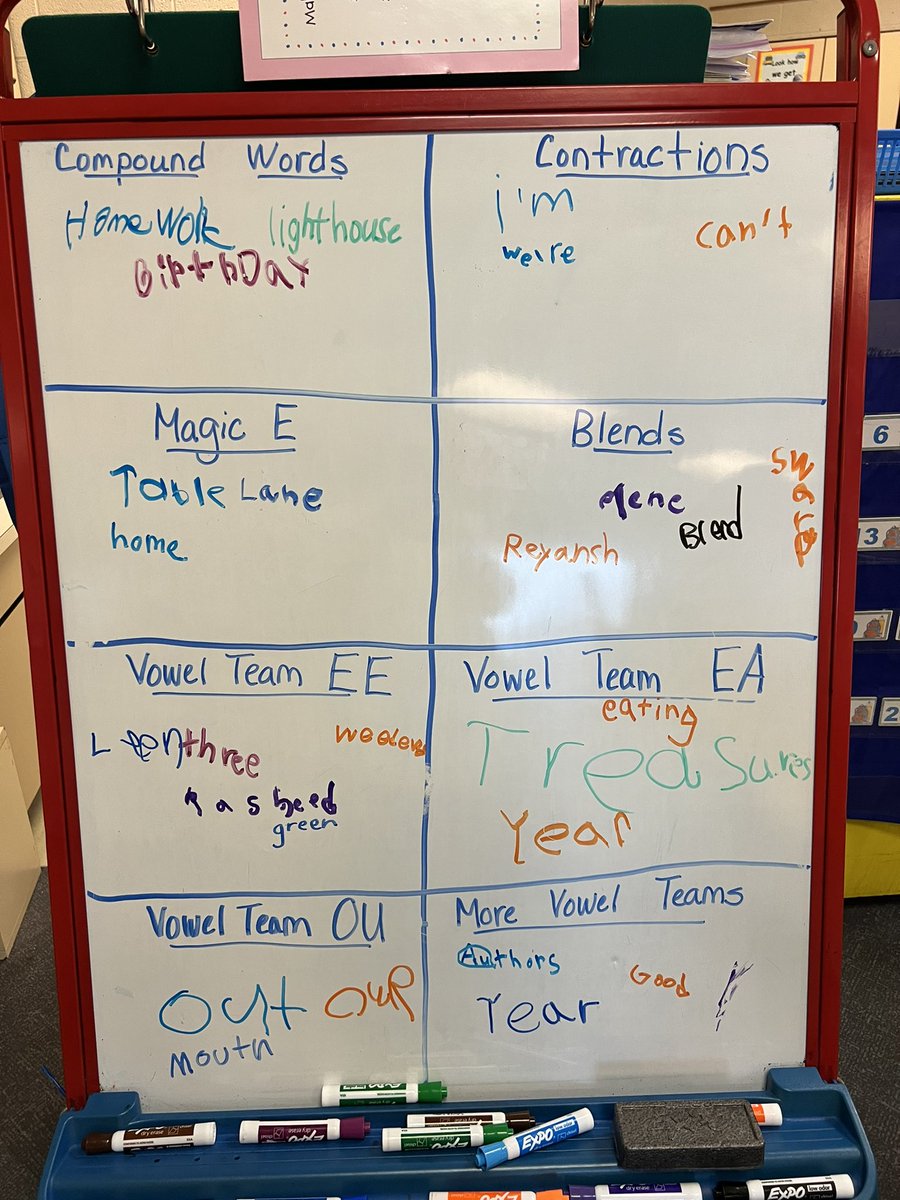 Look how
we get
Compound Words
HomeWork lighthouse
BirthDay
Contractions
i'm
can't
we're
6
3
2
Magic E
Table Lane
home
Blends
Blend
Reyansh
Vowel Team EE
three
Rasheed
green
Vowel Team EA
eating
Treasures
Year
Vowel Team OU
out our
mouth
More Vowel Teams
Authors
Good
Year
EXPO
EXPO
EXPO
EXPO
EXPO
EXPO low odor